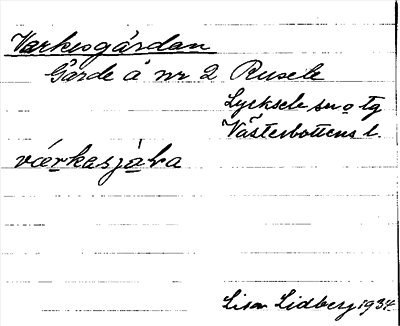 Varkesgärdan
Gärde å nr 2 Rusele
Lycksele sn o tg
Västerbottens l.
Lisa Lidberg 1934.